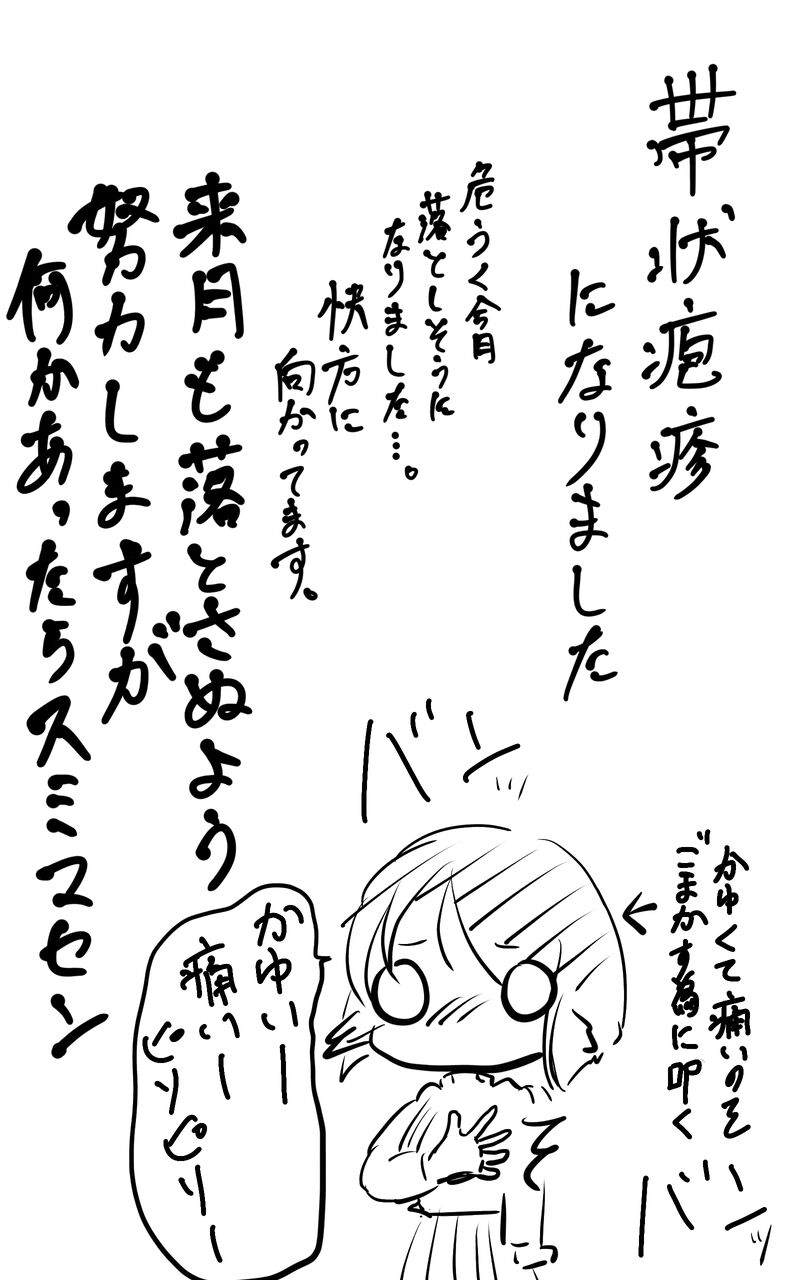 帯状疱疹
になりました
危うく今月
落としそうに
なりました…。
快方に
向かってます。
来月も落とさぬよう
努力しますが
何かあったらスミマセン
バン
かゆくて痛いのを
ごまかす為に叩く
バン
かゆいー
痛いー
ピリピリー